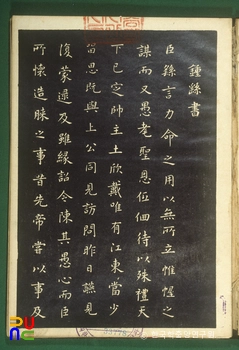 鍾繇書
臣繇言力命之用以無所立惟幄之
謀而又愚耄聖恩低佪待以殊禮天
下已定帥土欣戴唯有江東當少
留思既與上公同見訪問昨日疏見
復蒙逮及雖緣詔令陳其愚心而臣
所懷造膝之事昔先帝嘗以事及